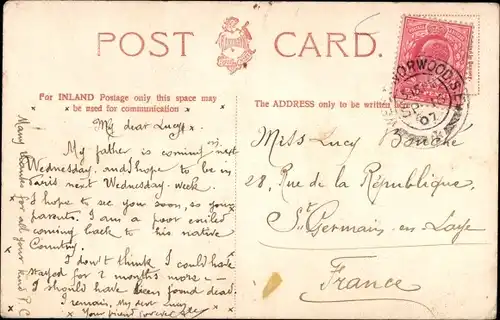 POST CARD.
For INLAND Postage only this space may
be used for communication
The ADDRESS only to be written
NORWOOD. S.
07
My dear Lucy
My father is coming next
Wednesday, and I hope to be in
Paris next Wednesday week.
I hope to see you soon, so your
parents. I am a poor exiled
coming back to his native
Country.
I don't think I could have
stayed for 2 months more –
I should have been found dead.
I remain, My dear Lucy
Your friend
Many thanks for all your kind P.C
Miss Lucy
28, Rue de la République,
St Germain-en-Laye
France